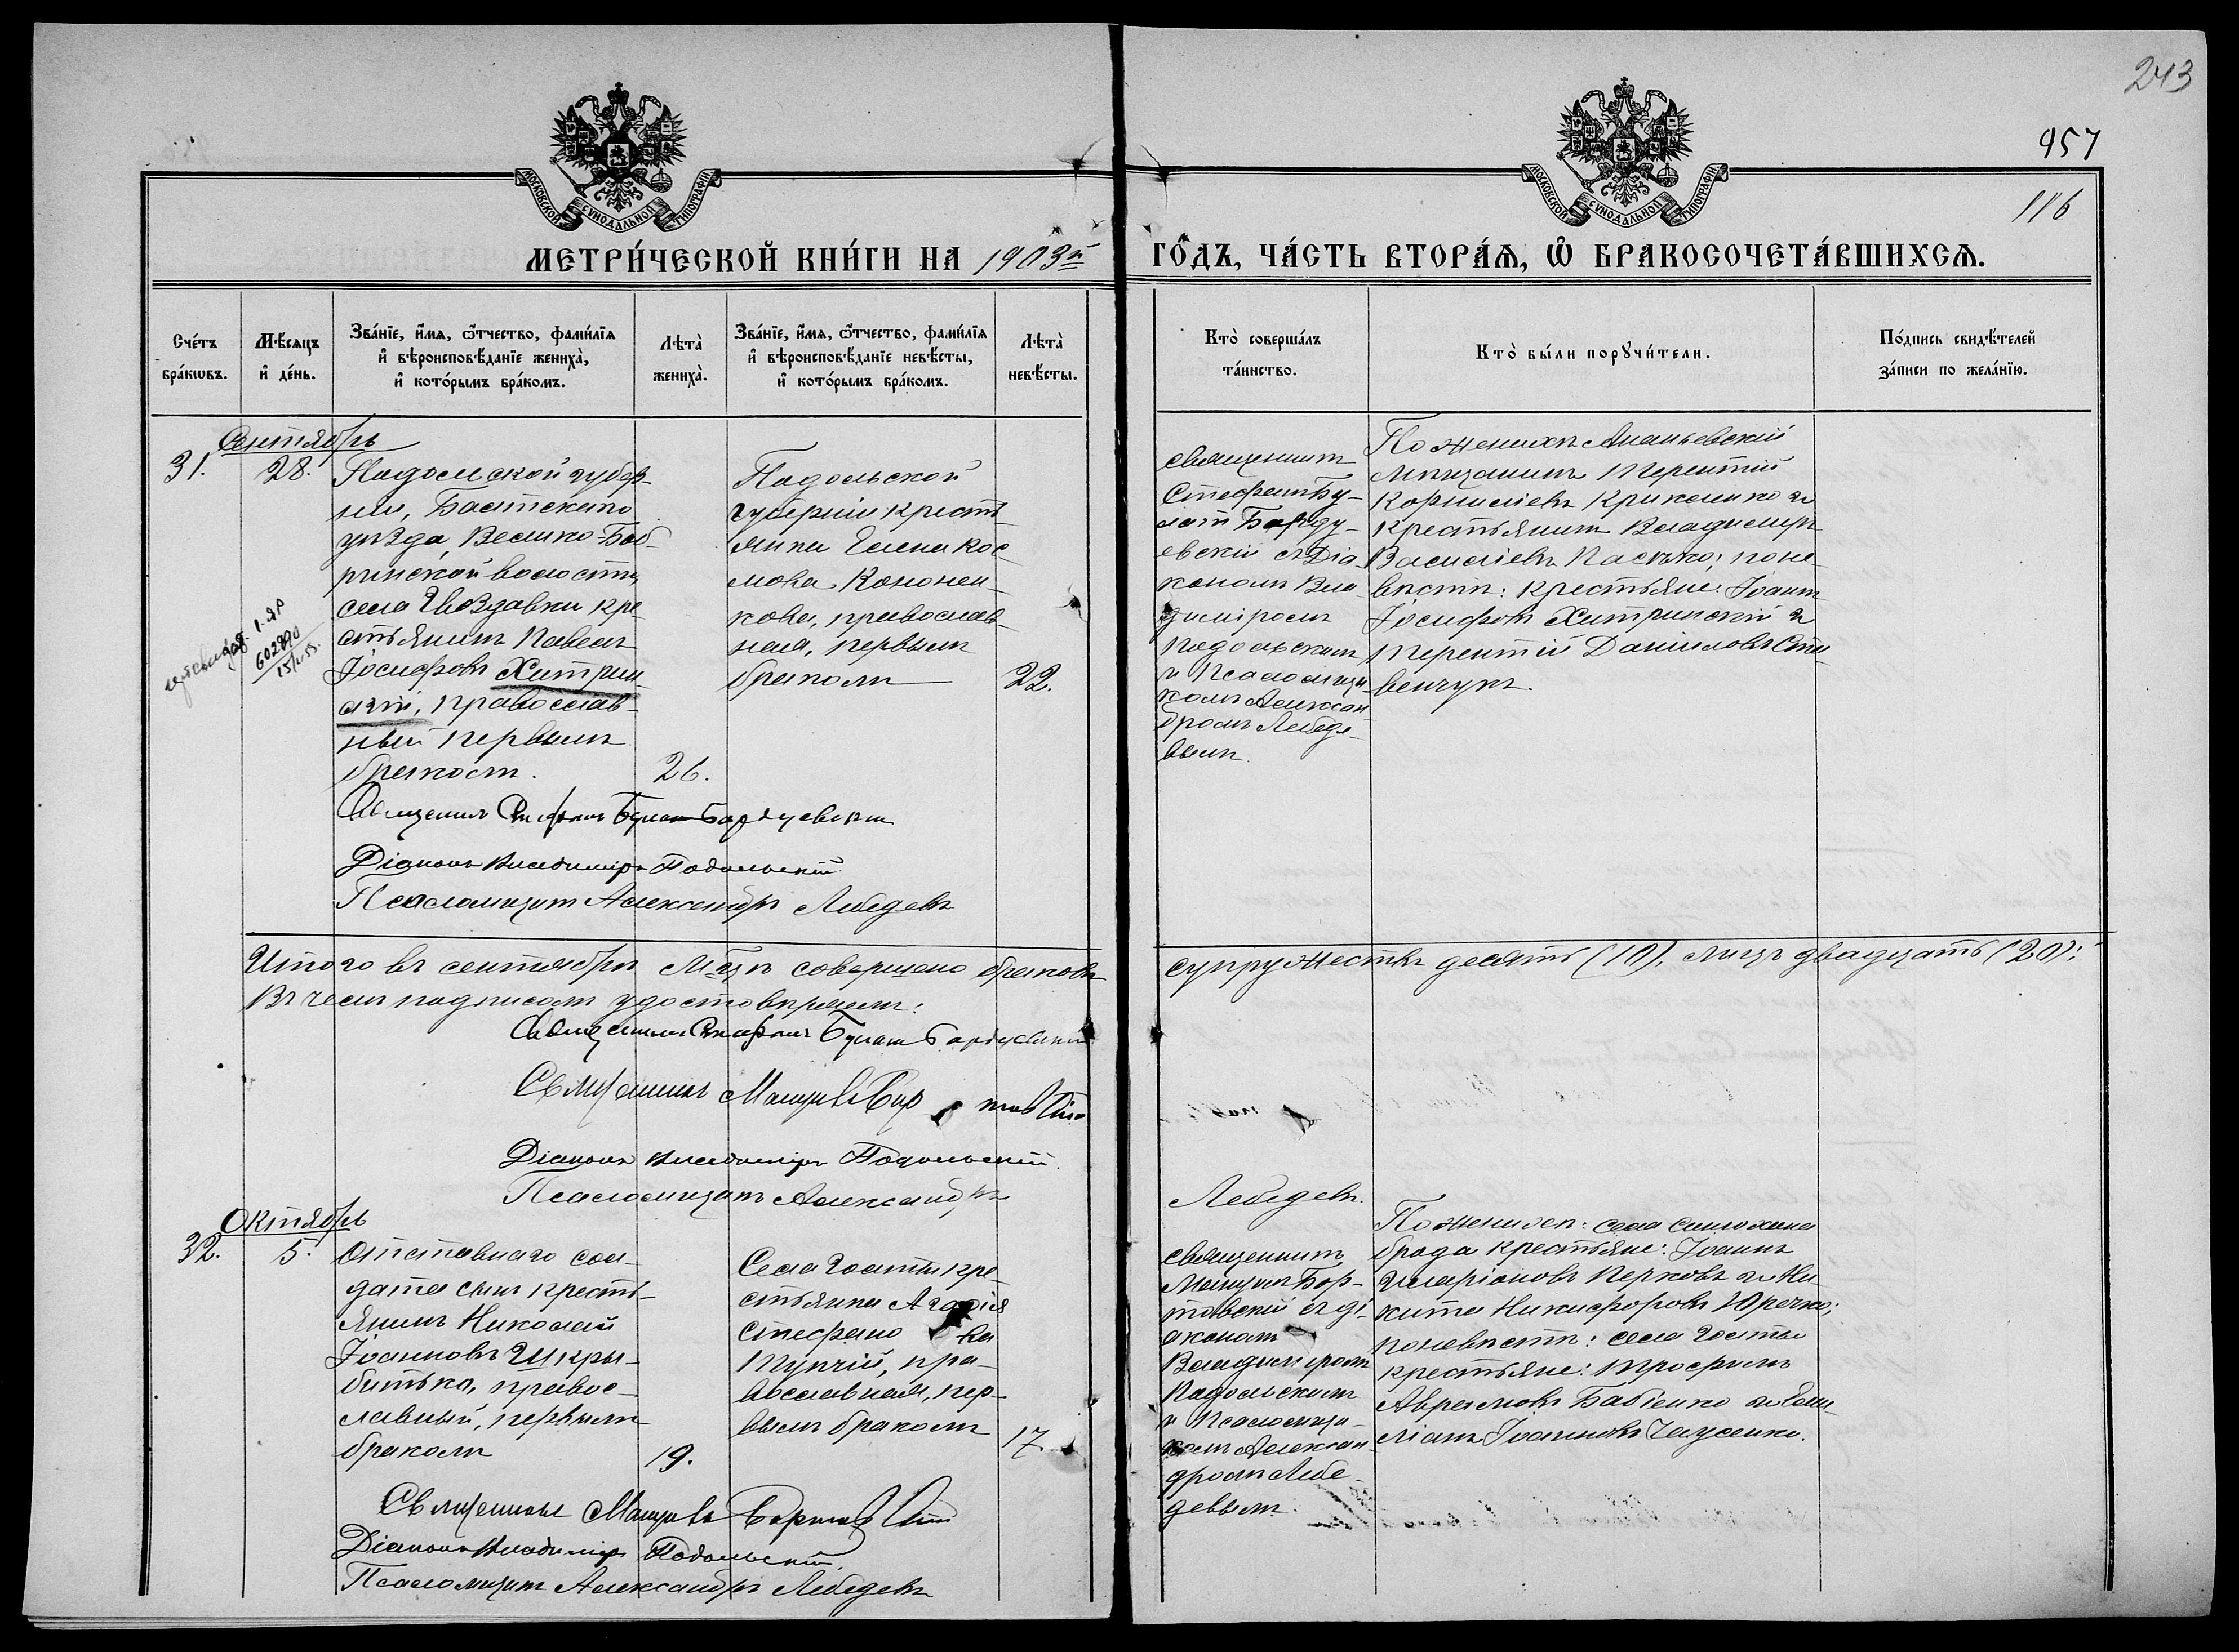 243
957
116
МОСКОВСКОЙ СѴНОДАЛЬНОЙ ТИПОГРАФІИ
МОСКОВСКОЙ СѴНОДАЛЬНОЙ ТИПОГРАФІИ
МЕТРИ́ЧЕСКОЙ КНИ́ГИ НА 1903й
ГО́ДЪ, ЧА́СТЬ ВТОРА́Ѧ, Ѽ БРАКОСОЧЕТА́ВШИХСѦ.
Сче́тъ
бра́кѡвъ.
Мѣ́сяцъ
и҆ де́нь.
Зва́нїе, и҆́мѧ, ѻ҆́тчество, фами́лїѧ
и҆ вѣроисповѣ́данїе жениха̀,
и҆ кото́рымъ бра́комъ.
Лѣта̀
жениха̀.
Зва́нїе, и҆́мѧ, ѻ҆́тчество, фами́лїѧ
и҆ вѣроисповѣ́данїе невѣ́сты,
и҆ кото́рымъ бра́комъ.
Лѣта̀
невѣ́сты.
Кто̀ соверша́лъ
та́инство.
Кто̀ бы́ли порꙋчи́тели.
По́дпись свидѣ́телей
за́писи по жела́нїю.
Сентябрь
31.
28.
Подольской губер-
ніи, Балтскаго
уѣзда, Велико-Боб-
ринской волости,
села Гвоздавки кре-
стьянинъ Павелъ
Іосифовъ Хитрин-
скій, православ-
ный первымъ
бракомъ.
26.
1-ЯР
602890
Подольской
губерніи кресть
янка Елена Кос
мова Кононен-
кова, православ-
ная, первымъ
бракомъ
22.
священникъ
Стефанъ Бу-
латъ Бардуе-
евскій съ Діа-
кономъ Вла-
диміромъ
Подольскимъ
и Псаломщи
комъ Алексан
дромъ Лебеде-
вымъ.
По женихѣ Ананьевскій
мѣщанинъ Терентій
Корниліевъ Крикленко и
крестьянинъ Владимиръ
Василіевъ Пасѣко; по не-
вѣстѣ: крестьяне: Іоаннъ
Іосифовъ Хитринскій и
Терентій Даниловъ Сти-
венчукъ.
Священникъ Стефанъ Булатъ Бардуевскій
Діаконъ Владиміръ Подольскій
Псаломщикъ Александръ Лебедевъ
Итого въ сентябрѣ м-цѣ совершено браковъ
супружествъ десять (10), лицъ двадцать (20);
Въ чемъ подписомъ удостовѣряемъ:
Священникъ Стефанъ Булатъ Бардуевскій
Священникъ
Діаконъ Владиміръ Подольскій.
Псаломщикъ Александръ
Лебедевъ.
Октябрь
32.
5.
Отставнаго сол-
дата сынъ кресть-
янинъ Николай
Іоанновъ Шкры-
битько, правос-
лавный, первымъ
бракомъ
19.
Села Голты кре-
стьянка Агафія
Стефано ва
Тупчій, пра-
вославная, пер-
вымъ бракомъ
17.
священникъ
съ ді-
акономъ
Владиміромъ
Подольскимъ
и Псаломщи-
комъ Алексан-
дромъ Лебе-
девымъ.
По женихѣ: села Синюхина
брода крестьяне: Іоаннъ
Иларіоновъ Перковъ и Ни-
кита Никифоровъ Юречко;
по невѣстѣ: села Голты
крестьяне: Трофимъ
Аврамовъ Бабіенко и Еми-
ліанъ Іоанновъ Чаусенко.
Священникъ
Діаконъ Владиміръ Подольскій.
Псаломщикъ Александръ Лебедевъ